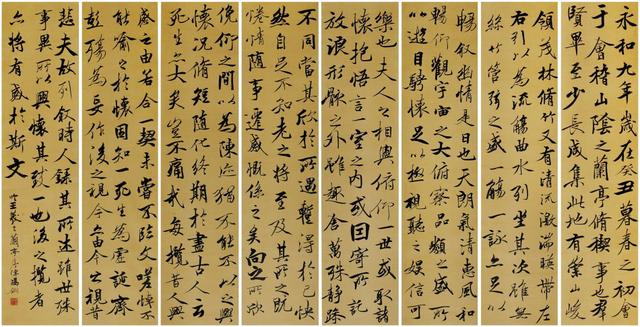 永和九年歲在癸丑暮春之初會
于會稽山陰之蘭亭脩稧事也群
賢畢至少長咸集此地有崇山峻
領茂林脩竹又有清流激湍暎帶左
右引以為流觴曲水列坐其次雖無
絲竹管弦之盛一觴一詠亦足以
暢敘幽情是日也天朗氣清惠風和
暢仰觀宇宙之大俯察品類之盛所
以遊目騁懷足以極視聽之娛信可
樂也夫人之相與俯仰一世或取諸
懷抱悟言一室之內或因寄所託
放浪形骸之外雖趣舍萬殊靜躁
不同當其欣於所遇蹔得於己怏
然自足不知老之將至及其所之既
惓情隨事遷感慨係之矣向之所欣
俛仰之間以為陳迹猶不能不以之興
懷況脩短隨化終期於盡古人云
死生亦大矣豈不痛哉每攬昔人興
感之由若合一契未嘗不臨文嗟悼不
能喻之於懷固知一死生為虛誕齊
彭殤為妄作後之視今亦由今之視昔
悲夫故列敘時人錄其所述雖世殊
事異所以興懷其致一也後之攬者
亦將有感於斯文